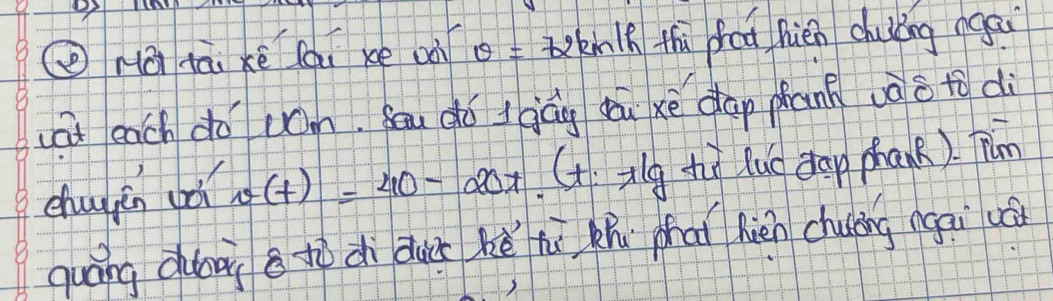 ② Một tài xế lái xe với v = 72km/h thì phát hiện chướng ngại
vật cách đó 100m. Sau đó 1 giây tài xế đạp phanh và ô tô di
chuyển với v(t) = 40 - 20t. (t: tg từ lúc đạp phanh). Tìm
quãng đường ô tô đi được kể từ khi phát hiện chướng ngại vật